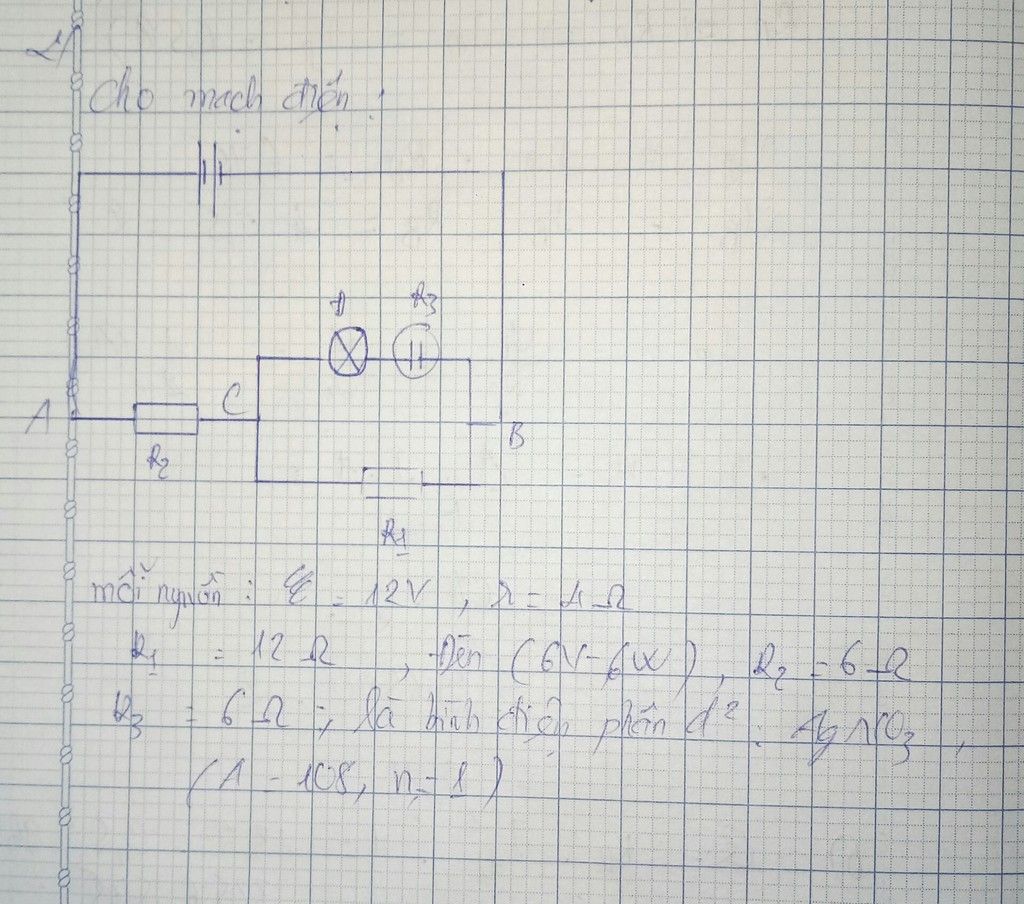 Cho mạch điện :
Đ R3
A C
B
R2
R1
mỗi nguồn : ξ = 12V , r = 1 Ω
R1 = 12 Ω , Đèn (6V - 6W) , R2 = 6 Ω
R3 = 6 Ω ; là bình điện phân d² : AgNO3 ,
(A = 108, n = 1)